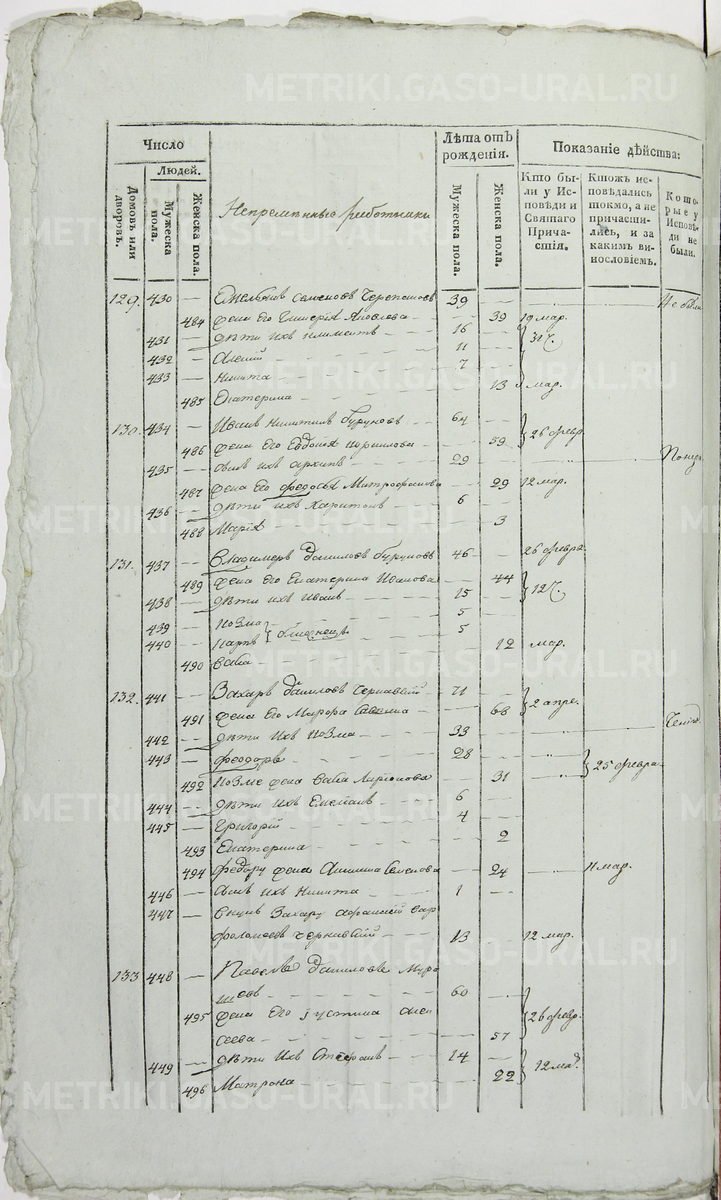 Число
Людей.
Домовъ или дворовъ.
Мужеска пола.
Женска пола.
Непременные работники
Лѣта отъ рожденія.
Мужеска пола.
Женска пола.
Показаніе дѣйства:
Кто были у Исповѣди и Святаго Причастія.
Ктожъ исповѣдались токмо, а не причастились, и за какимъ винословіемъ.
Которые у Исповѣди не были.
129. 430 — Емельянъ Семеновъ 39 — Не был
484 жена его Яковлева — 39 19 мар.
431 — дѣти ихъ Климентъ 16
432 — Алексій 11 — 317.
433 — Никита 7
485 Екатерина — 13 9 мар.
130. 434 — Иванъ Никитинъ Бурухов 64
486 жена его Евдокія — 59 26 февр.
435 — сынъ ихъ Архипъ 29
487 жена его Федосья Митрофанова — 29 12 мар.
436 — дѣти ихъ Харитонъ 6
488 Марія — 3
131. 437 — Владимеръ Даниловъ Бурухов 46 — 26 февра.
489 жена его Екатерина Иванова — 44
438 — дѣти ихъ Иванъ 15 — 127.
439 — Козма 5
440 — Карпъ близнецы 5
490 Савва — 12 мар.
132. 441 — Захаръ Даниловъ Чернавскій 71
491 жена его Савина — 68 2 апре.
442 — дѣти ихъ Козма 33
443 — Феодоръ 28
492 Козме жена — 31 25 февра.
444 — дѣти ихъ Емеліанъ 6
445 — Григорій 4
493 Екатерина — 2
494 Федору жена Семенова — 24 11 мар.
446 — сынъ ихъ Никита 1
447 — Захару Вар
фоломеевъ 13 12 мар.
133 448 — Павелъ Даниловъ Мура
шевъ 60
495 жена его Іустина Алек
сеева — 57 26 февр.
449 — дѣти ихъ Стефанъ 14
496 Матрона — 22 12 мар.
METRIKI.GASO-URAL.RU